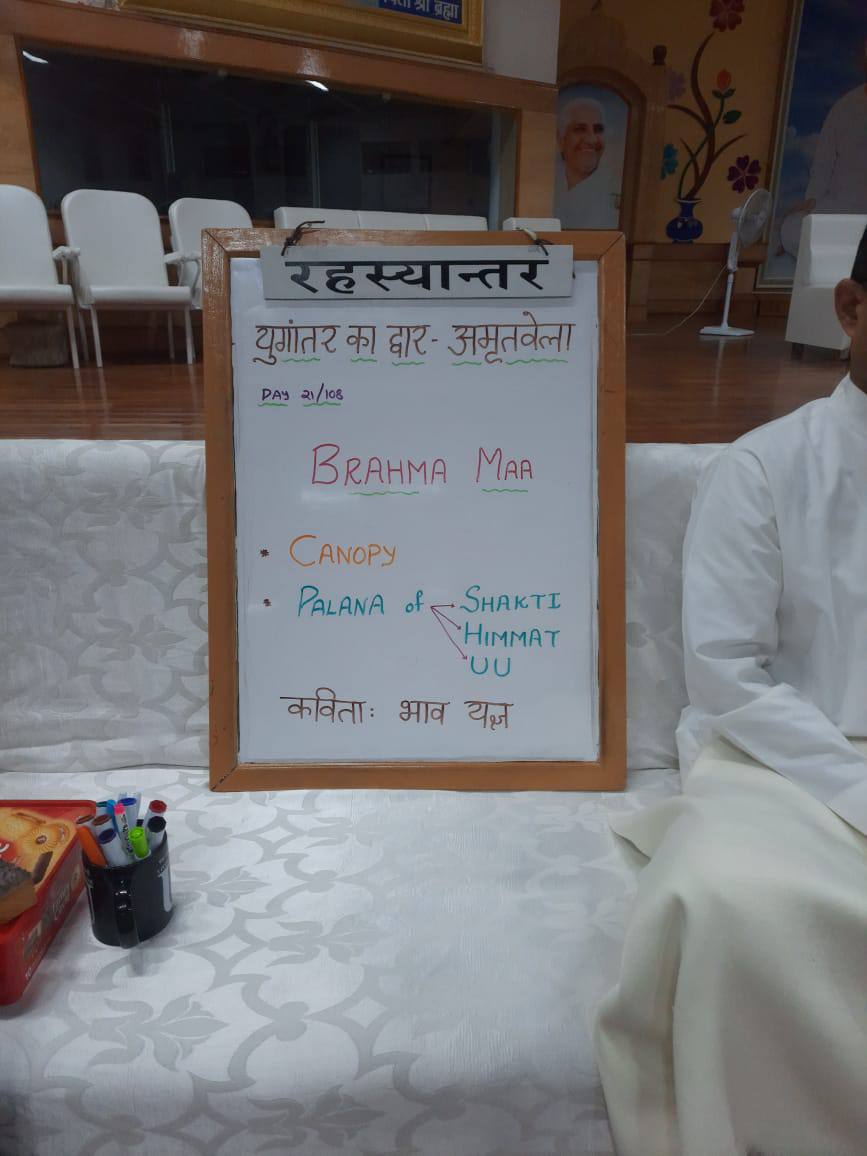 पिता श्री ब्रह्मा
रहस्यान्तर
युगांतर का द्वार - अमृतवेला
DAY 21/108
BRAHMA MAA
* CANOPY
* PALANA of → SHAKTI
→ HIMMAT
→ UU
कविता: भाव यज्ञ